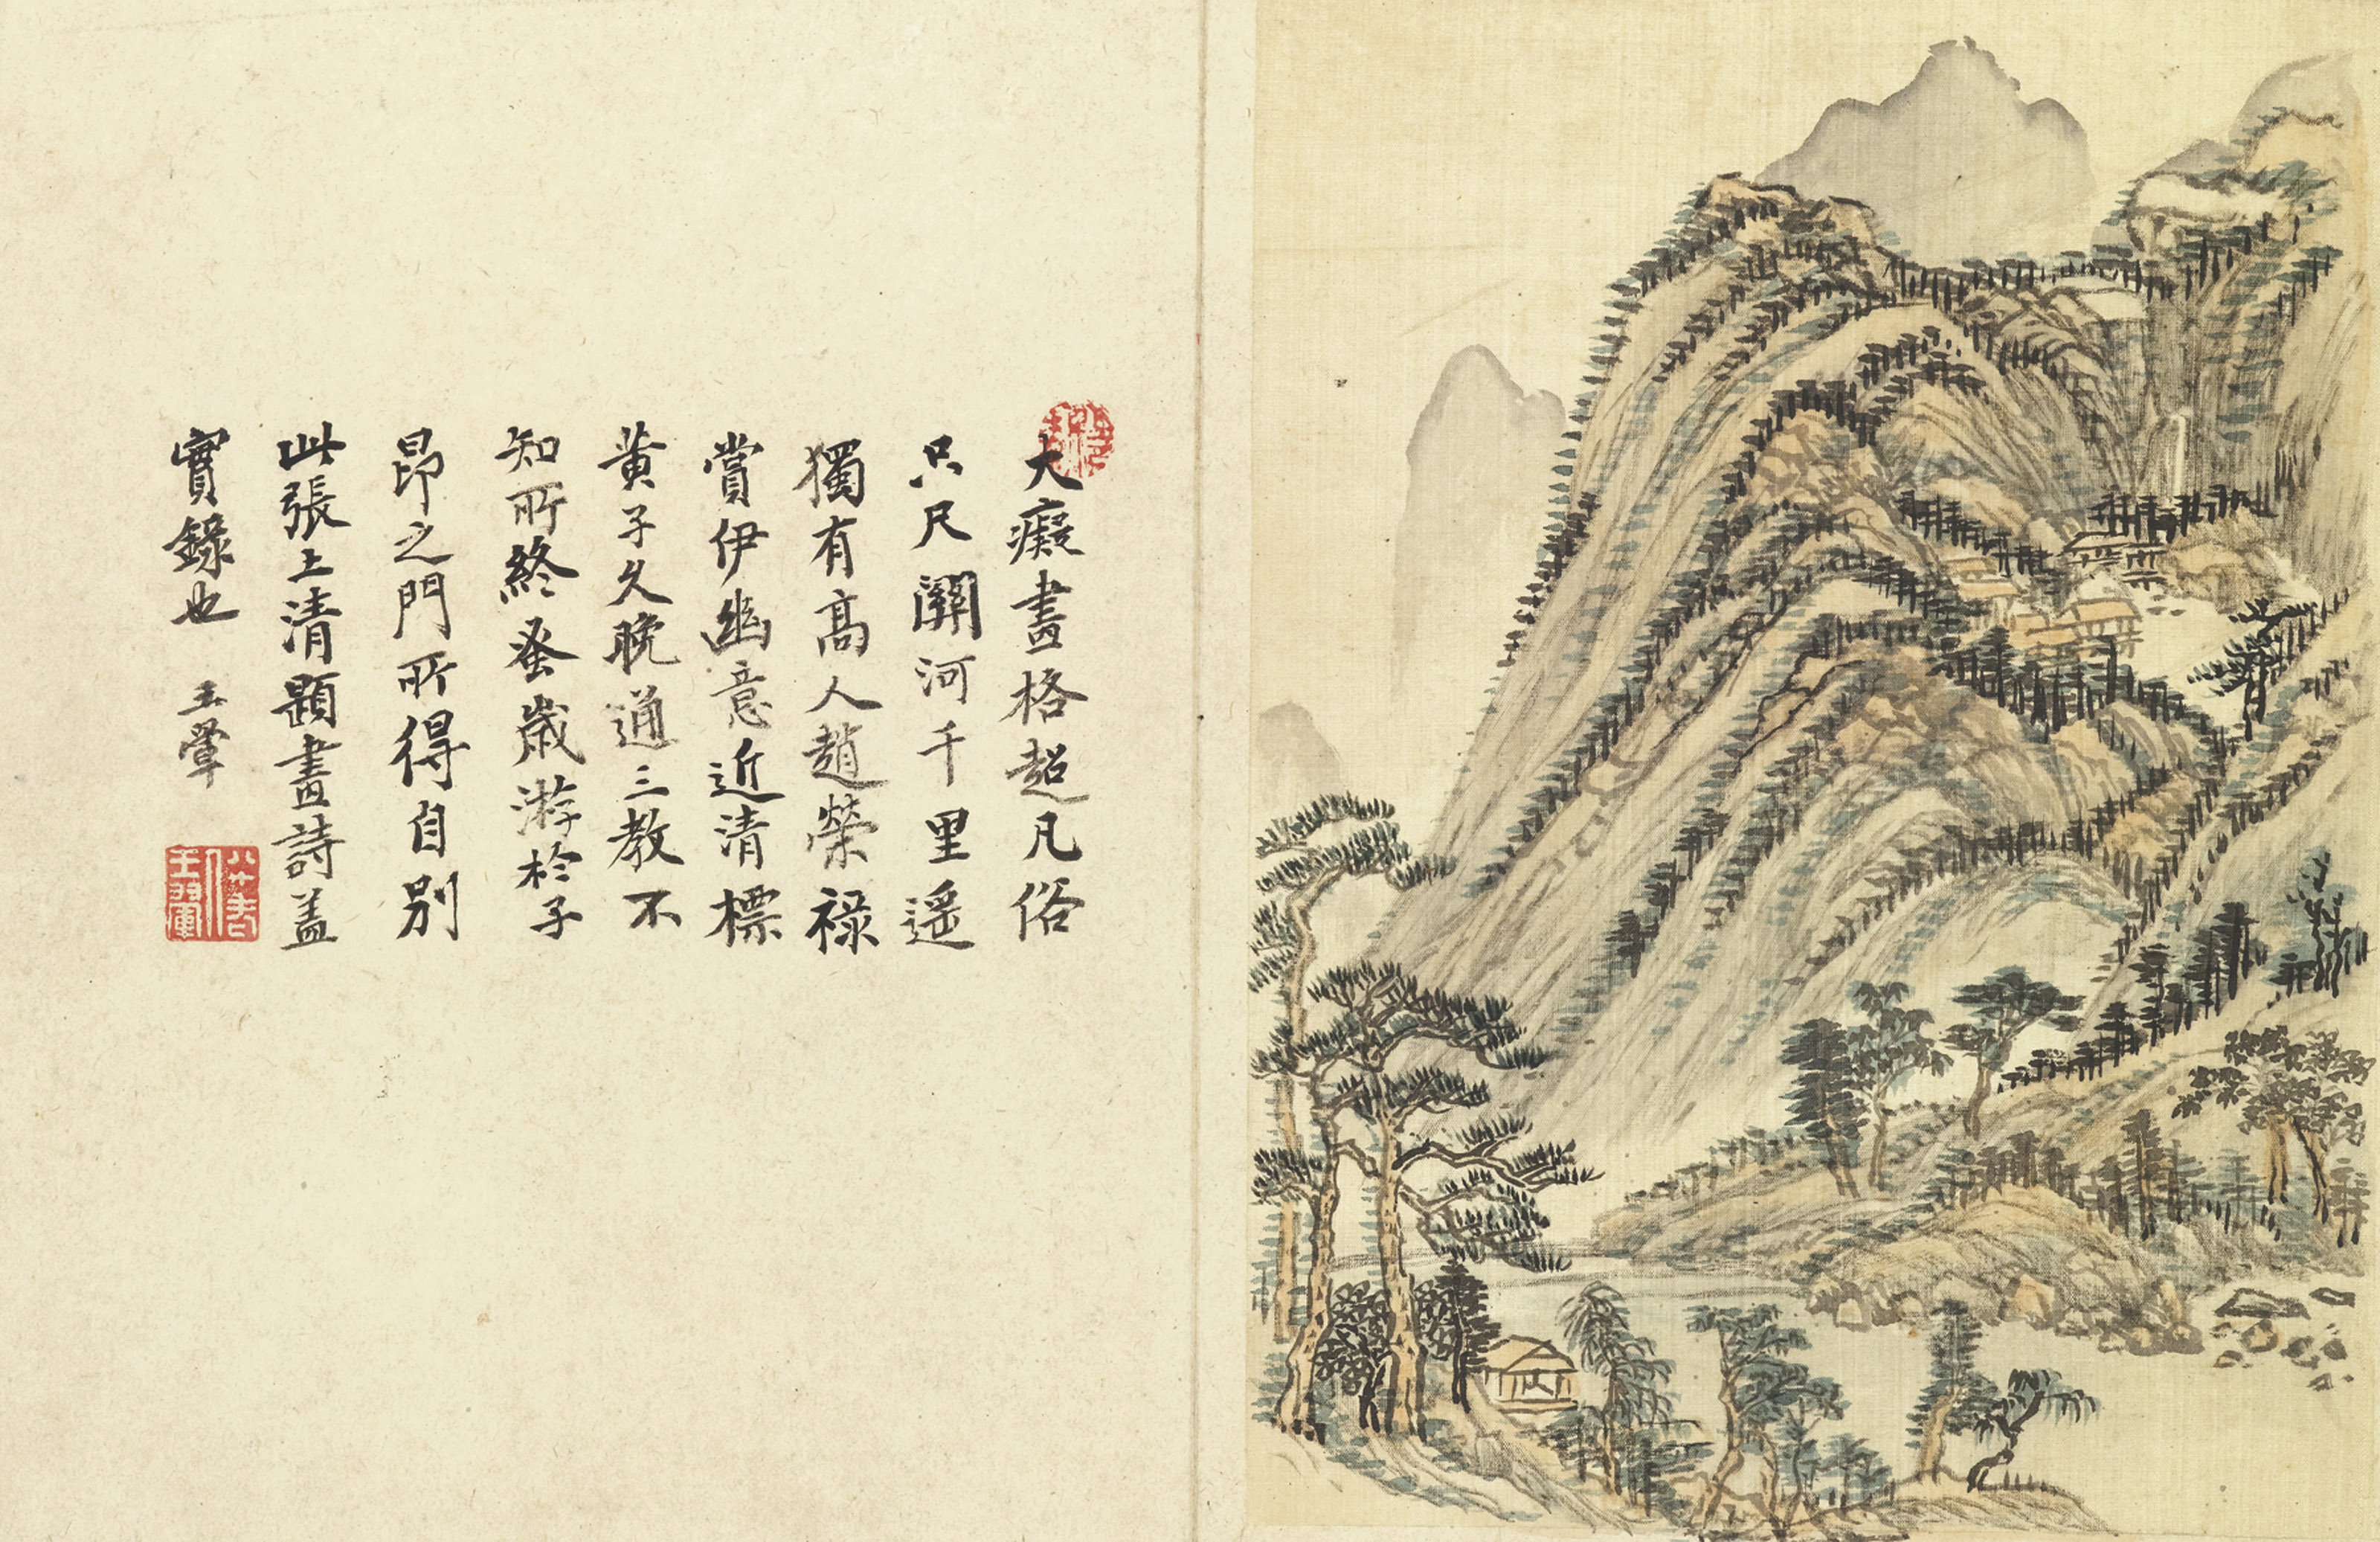 大癡畫格超凡俗
只尺關河千里遙
獨有高人趙榮祿
賞伊幽意近清標
黃子久晚通三教不
知所終蚤歲游於子
昂之門所得自別
此張上清題畫詩蓋
實錄也 王翬